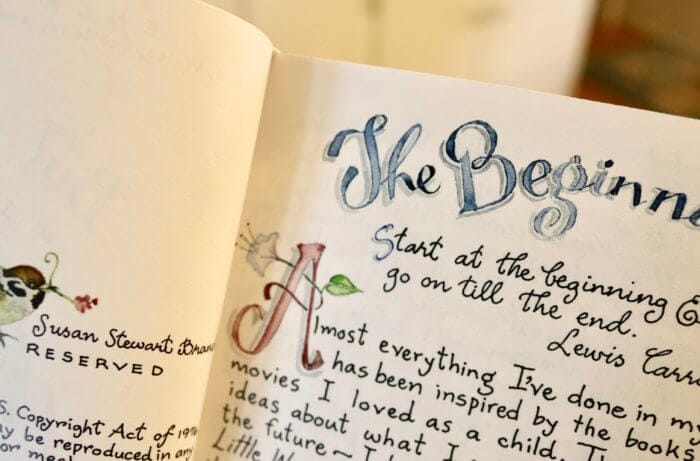 Susan Stewart Bran
RESERVED
S. Copyright Act of 197
ay be reproduced in any
or me
The Beginn
Start at the beginning &
go on till the end.
Lewis Carr
Almost everything I've done in my
has been inspired by the books
movies I loved as a child.
ideas about what I
the future ~ I
Little W